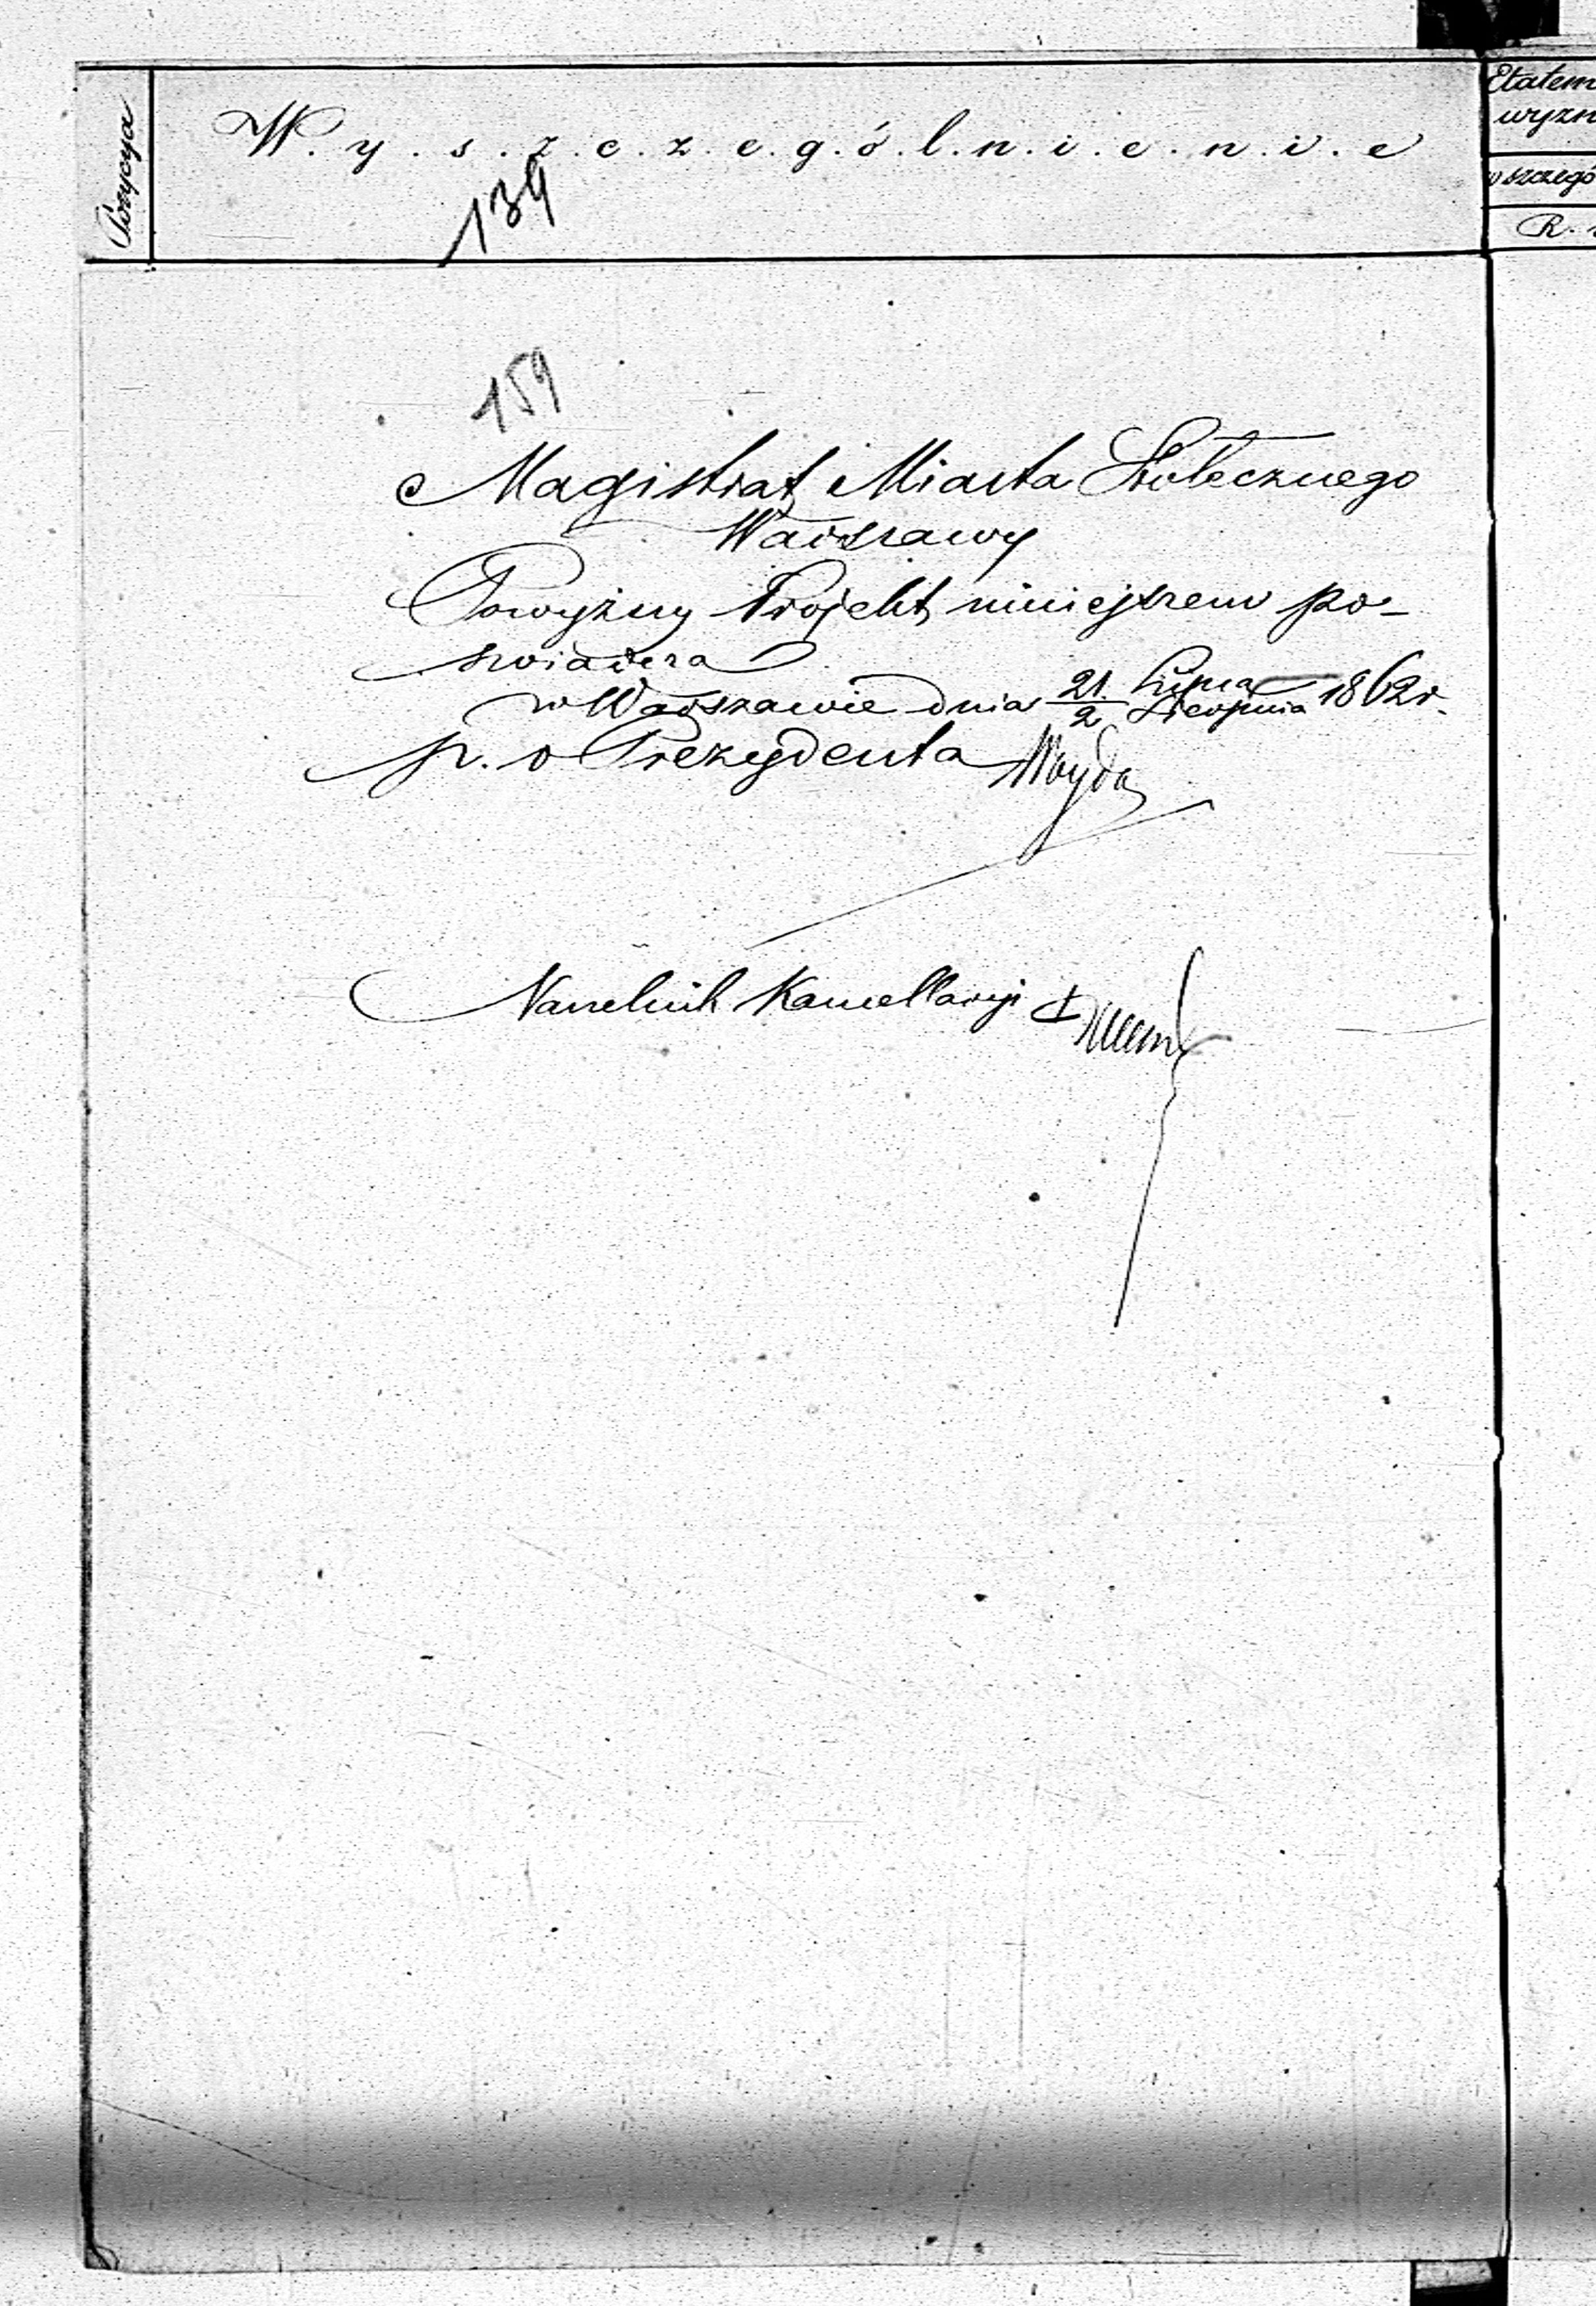 Pozycya
W.y.s.z.c.z.e.g.ó.l.n.i.e.n.i.e
Etatem
wyzn
w szczegó
R.
139
159
Magistrat Miasta Stołecznego
Warszawy
Powyższy Projekt niniejszem po-
swiadcza
w Warszawie dnia 21/2 Lipca/Sierpnia 1862 r.
p. o Prezydenta Woyda
Naczelnik Kancellaryi